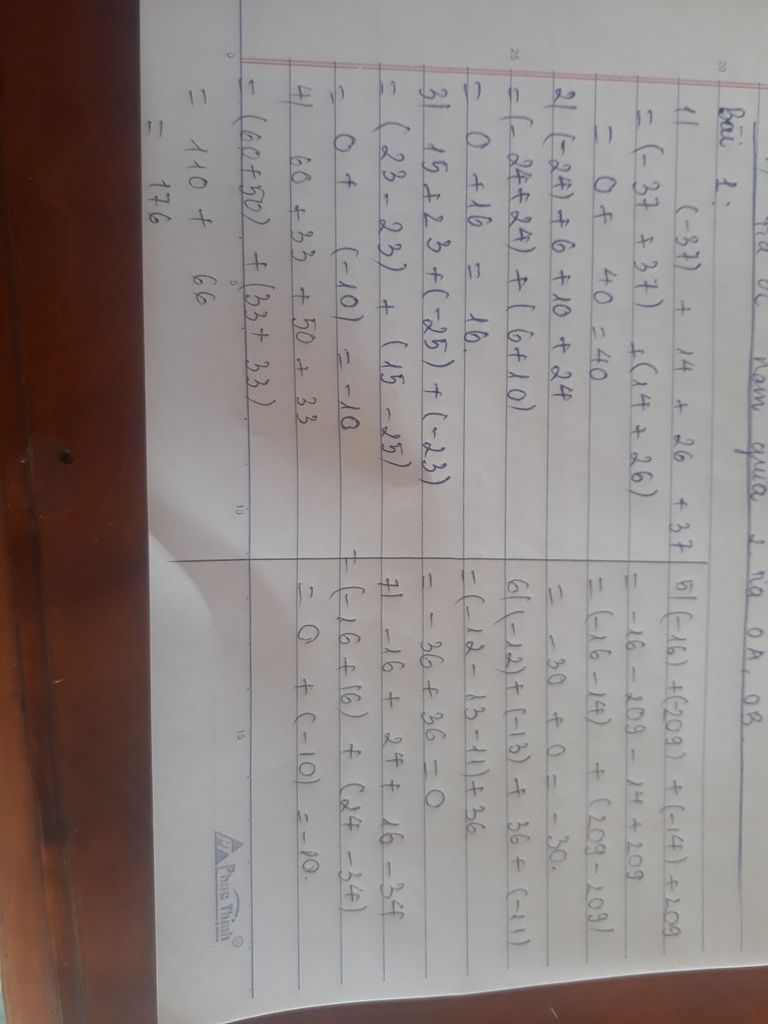 nằm giữa 2 tia OA, OB
Bài 1:
1) (-37) + 14 + 26 + 37
= (-37 + 37) + (14 + 26)
= 0 + 40 = 40
2) (-24) + 6 + 10 + 24
= (-24 + 24) + (6 + 10)
= 0 + 16 = 16.
3) 15 + 23 + (-25) + (-23)
= (23 - 23) + (15 - 25)
= 0 + (-10) = -10
4) 60 + 33 + 50 + 33
= (60 + 50) + (33 + 33)
= 110 + 66
= 176
5) (-16) + (-209) + (-14) + 209
= -16 - 209 - 14 + 209
= (-16 - 14) + (209 - 209)
= -30 + 0 = -30.
6) (-12) + (-13) + 36 + (-11)
= (-12 - 13 - 11) + 36
= -36 + 36 = 0
7) -16 + 24 + 16 - 34
= (-16 + 16) + (24 - 34)
= 0 + (-10) = -10.
Phuc Thinh®
20
25
0
5
10
15